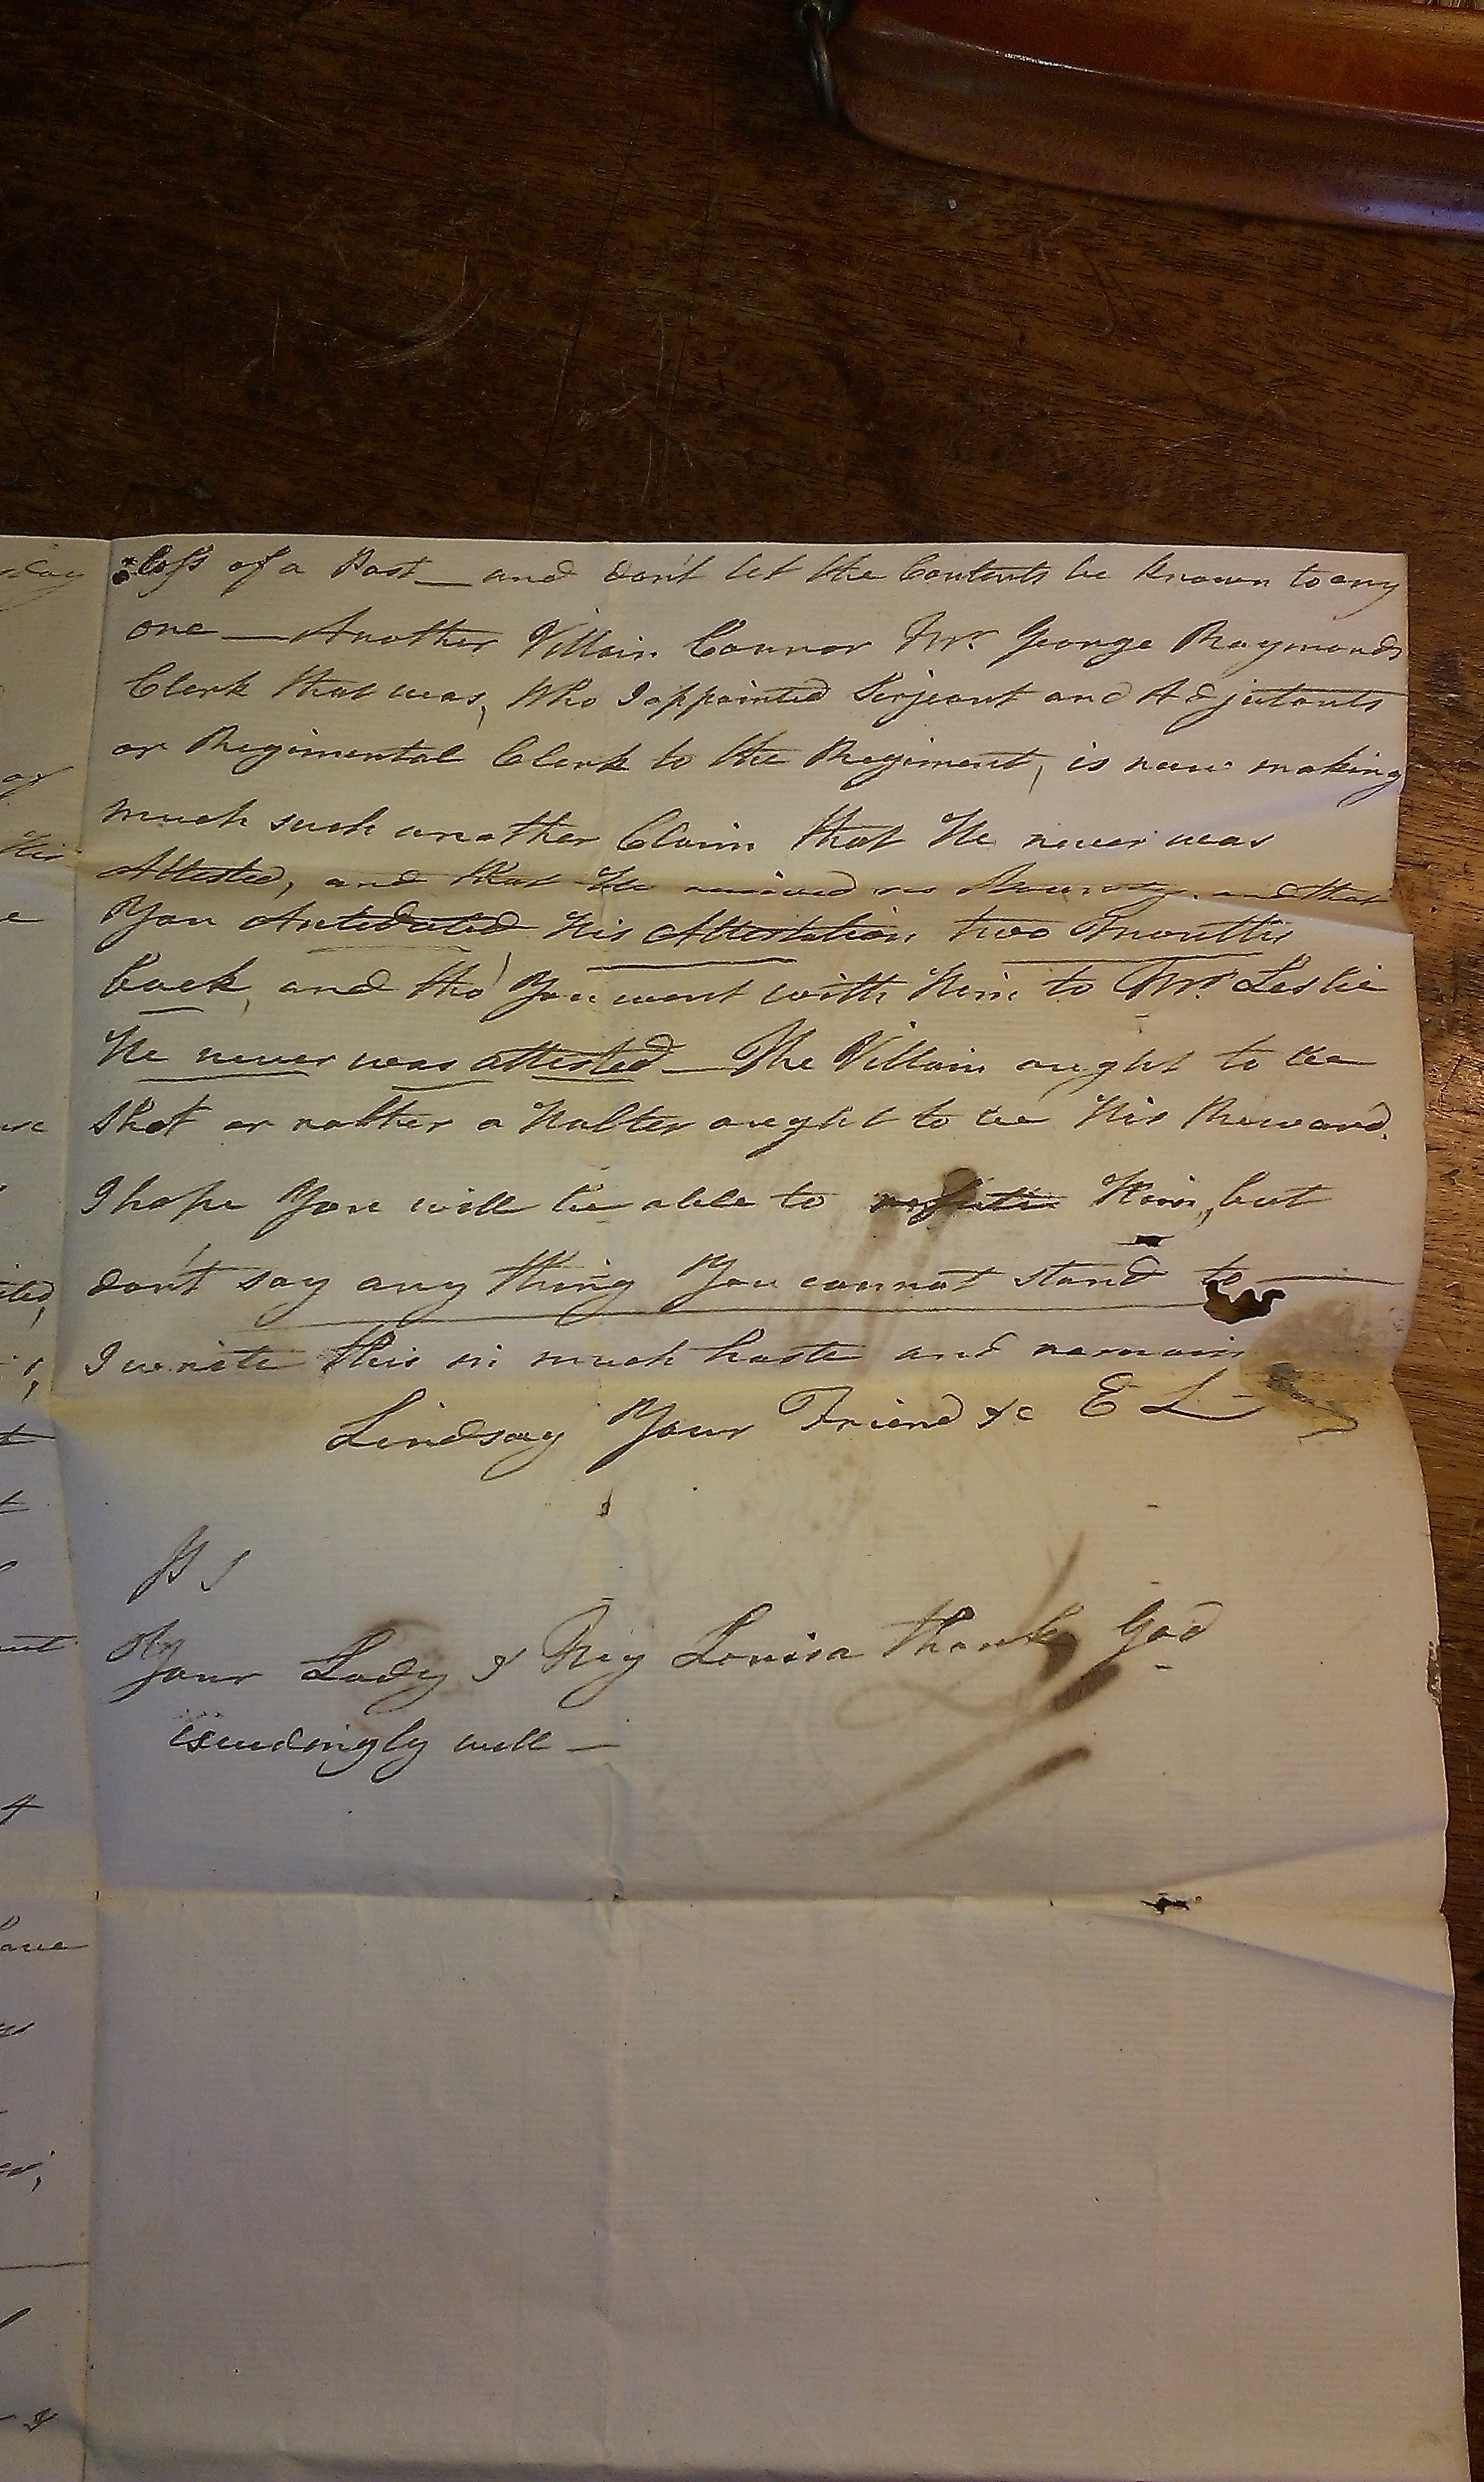 loss of a Post — and don't let the Contents be known to any
one — Another Villain Connor Mr. George Raymonds
Clerk that was, Who I appointed Serjeant and Adjutants
or Regimental Clerk to the Regiment, is now making
much such another Claim that He never was
Attested, and that He received no Bounty, and that
You Antedated His Attestation two Months
back, and tho' You went with Him to Mr. Leslie
He never was attested — The Villain ought to be
Shot or rather a Halter ought to be His Reward.
I hope You will be able to refute Him, but
don't say any thing You cannot stand to —
I write this in much haste and remain
Lindsay Your Friend &c E L
PS
Your Lady & My Louisa thank God
exceedingly well —